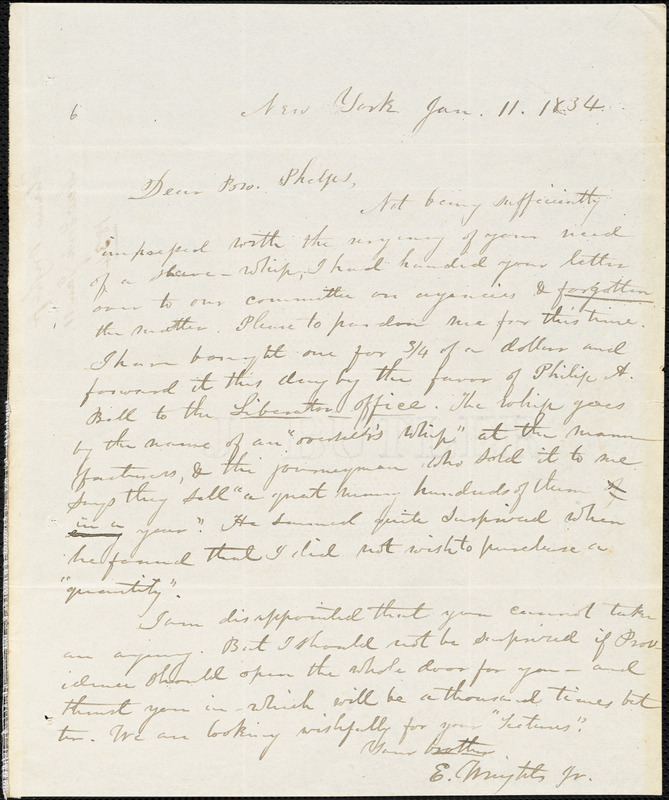 6
New York Jan. 11. 1834.
Dear Bro. Phelps,
Not being sufficiently
impressed with the urgency of your need
of a slave-whip, I had handed your letter
over to our committee on agencies & forgotten
the matter. Please to pardon me for this time.
I have bought one for 3/4 of a dollar and
forward it this day by the favor of Philip A.
Bell to the Liberator office. The whip goes
by the name of an "overseer's whip" at the manu
facturers, & the journeyman who sold it to me
says they sell "a great many hundreds of them
in a year". He seemed quite surprised when
he found that I did not wish to purchase a
"quantity".
I am disappointed that you cannot take
an agency. But I should not be surprised if Prov
idence should open the whole door for you – and
thrust you in – which will be a thousand times bet
ter. We are looking wishfully for your "Lectures".
Your brother
E. Wright Jr.